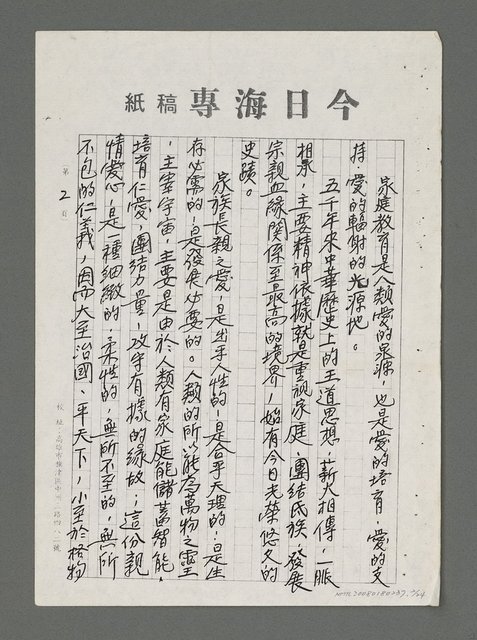 今日海專稿紙
家庭教育是人類愛的泉源，也是愛的培育，愛的支
持，愛的輻射的光源地。
五千年來中華歷史上的王道思想，薪火相傳，一脈
相承，主要精神依據就是重視家庭，團結民族，發展
宗親血緣關係至最高的境界，始有今日光榮悠久的
史蹟。
家族長親之愛，是出乎人性的，是合乎天理的，是生
存必需的，是發展必要的。人類的所以能為萬物之靈
，主宰宇宙，主要是由於人類有家庭能儲蓄智能，
培育仁愛，團結力量，攻守有樣的緣故；這份親
情愛心，是一種細緻的，柔性的，無所不至的，無所
不包的仁義，因而大至治國、平天下，小至於格物
第2頁
校址：高雄市旗津區中洲三路四八二號
NMTL20080180237 2/24